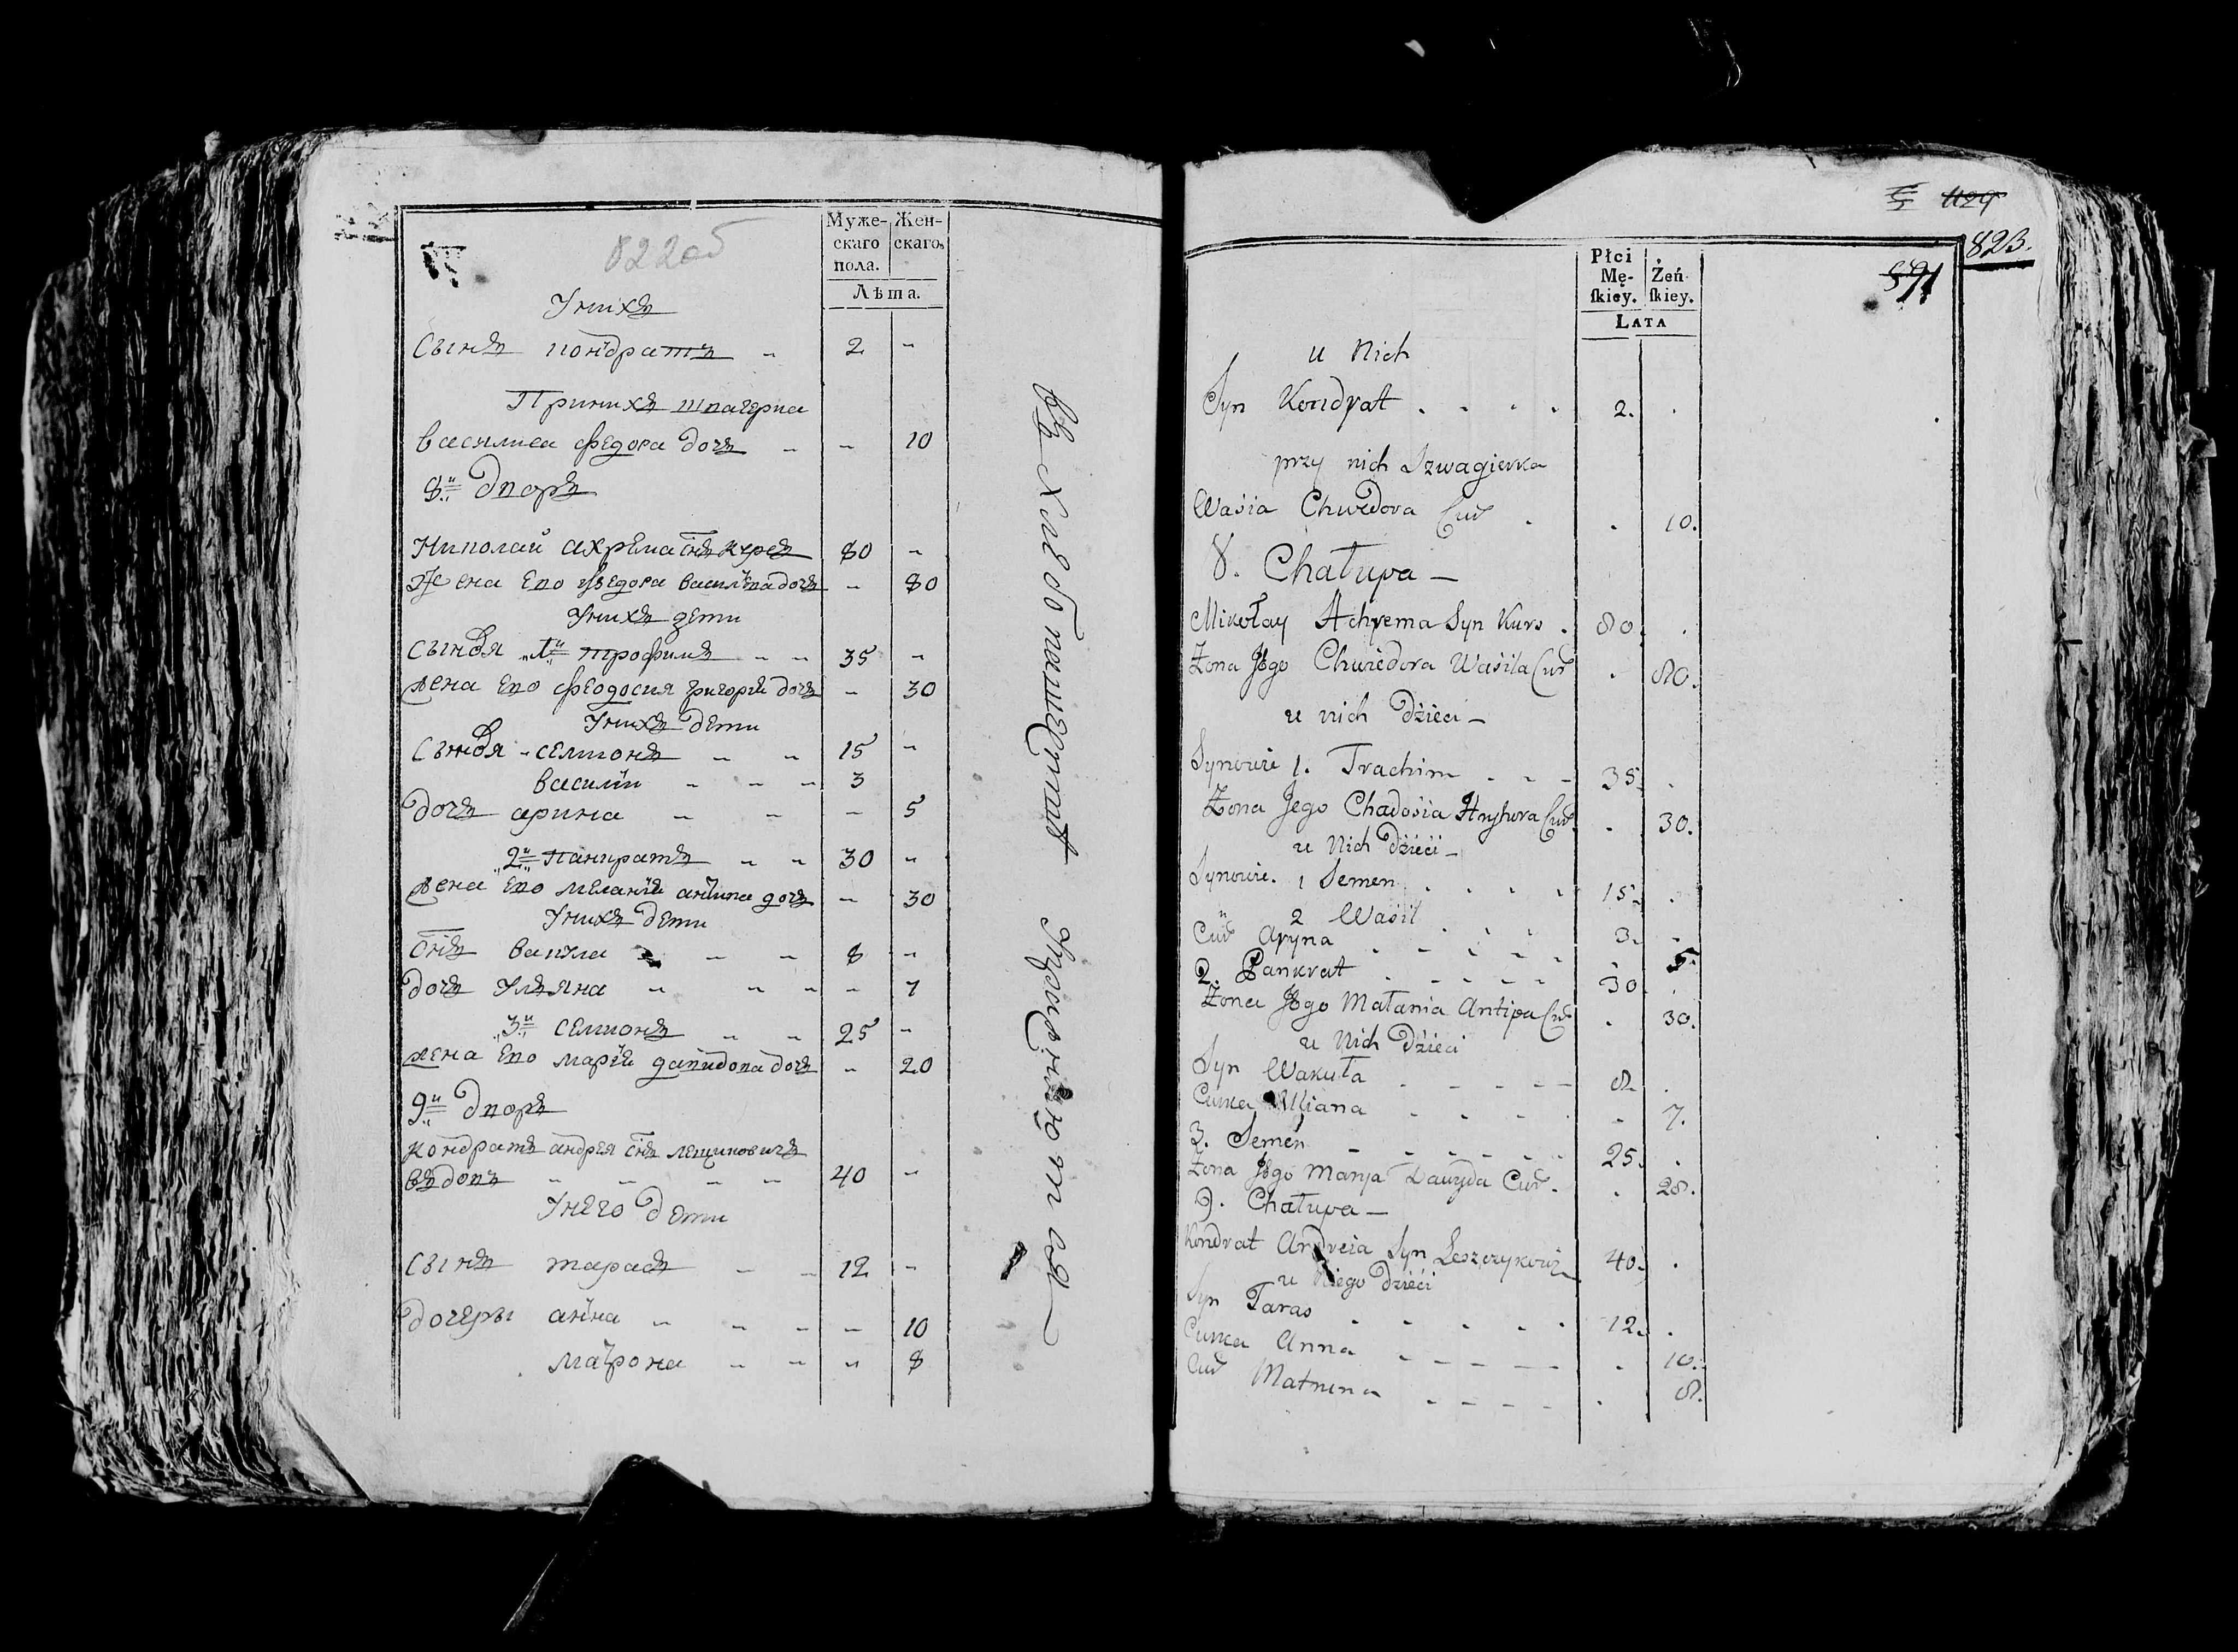 822об
Муже-
скаго
пола.
Жен-
скаго
Лѣта.
У нихъ
Сынъ кондратъ 2 -
При нихъ швагерка
василиса федора дочъ - 10
8й дворъ
Николай ахрема снъ курсъ 80 -
Жена его федора василева дочъ - 80
У нихъ дети
Сыновя 1й трофимъ 35 -
жена его феодосия григорей дочъ - 30
У нихъ дети
Сыновя семионъ 15 -
василий 3
дочъ арина - 5
2й панкратъ 30 -
жена его меланiя антипа дочъ - 30
У нихъ дети
снъ вакула 8 -
дочъ улъяна - 7
3й семионъ 25 -
жена его марiя давидова дочъ - 20
9й дворъ
кондратъ андрея снъ лещиковичъ
въдовъ 40 -
У него дети
Сынъ тарасъ 12 -
дочеры анна - 10
матрона - 8
823.
u Nich
Płci
Mę-
ſkiey.
Żeń-
ſkiey.
LATA
Syn Kondrat 2.
przy nich Szwagierka
Wasia Chwedora Cur 10.
8. Chałupa
Mikołay Achrema Syn Kurs 80.
Żona Jego Chwiedora Wasila Cur 80.
u nich Dzieci
Synowie 1. Trachim 35.
Żona Jego Chadosia Hryhora Cur 30.
u Nich Dzieci
Synowie. 1 Semen 15.
2 Wasil 3.
Cur Aryna 5.
2. Pankrat 30
Żona Jego Małania Antipa Cur 30.
u Nich Dzieci
Syn Wakuła 8.
Curka Uliana 7.
3. Semen 25.
Żona Jego Marya Dawyda Cur. 28.
9. Chałupa
Kondrat Andreia Syn Leszczykowicz 40.
u Niego Dzieci
Syn Taras 12.
Curka Anna 10.
Cur Matruna 8.